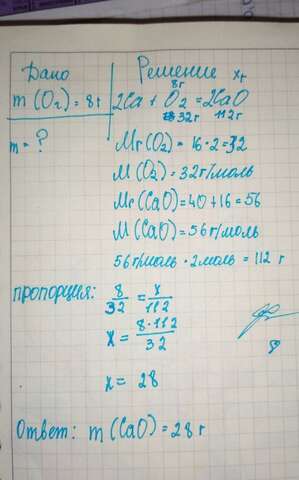 Дано
Решение
xг
8г
m(O₂)=8г
2Ca + O₂ = 2CaO
32г 112г
m = ?
Mr(O₂) = 16·2=32
M(O₂) = 32г/моль
Mr(CaO)=40+16=56
M(CaO)=56г/моль
56г/моль · 2моль = 112 г
пропорция: 8/32 = x/112
x = 8·112/32
x = 28
Ответ: m(CaO)=28г